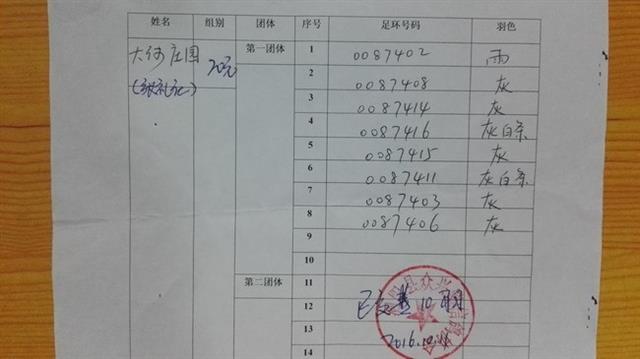 姓名 组别 团体 序号 足环号码 羽色
大何庄园 20元 第一团体 1 0087402 雨
2 0087408 灰
3 0087414 灰
4 0087416 灰白条
5 0087415 灰
6 0087411 灰白条
7 0087403 灰
8 0087406 灰
9
10
第二团体 11
12 已交 10羽
13 2016.
14